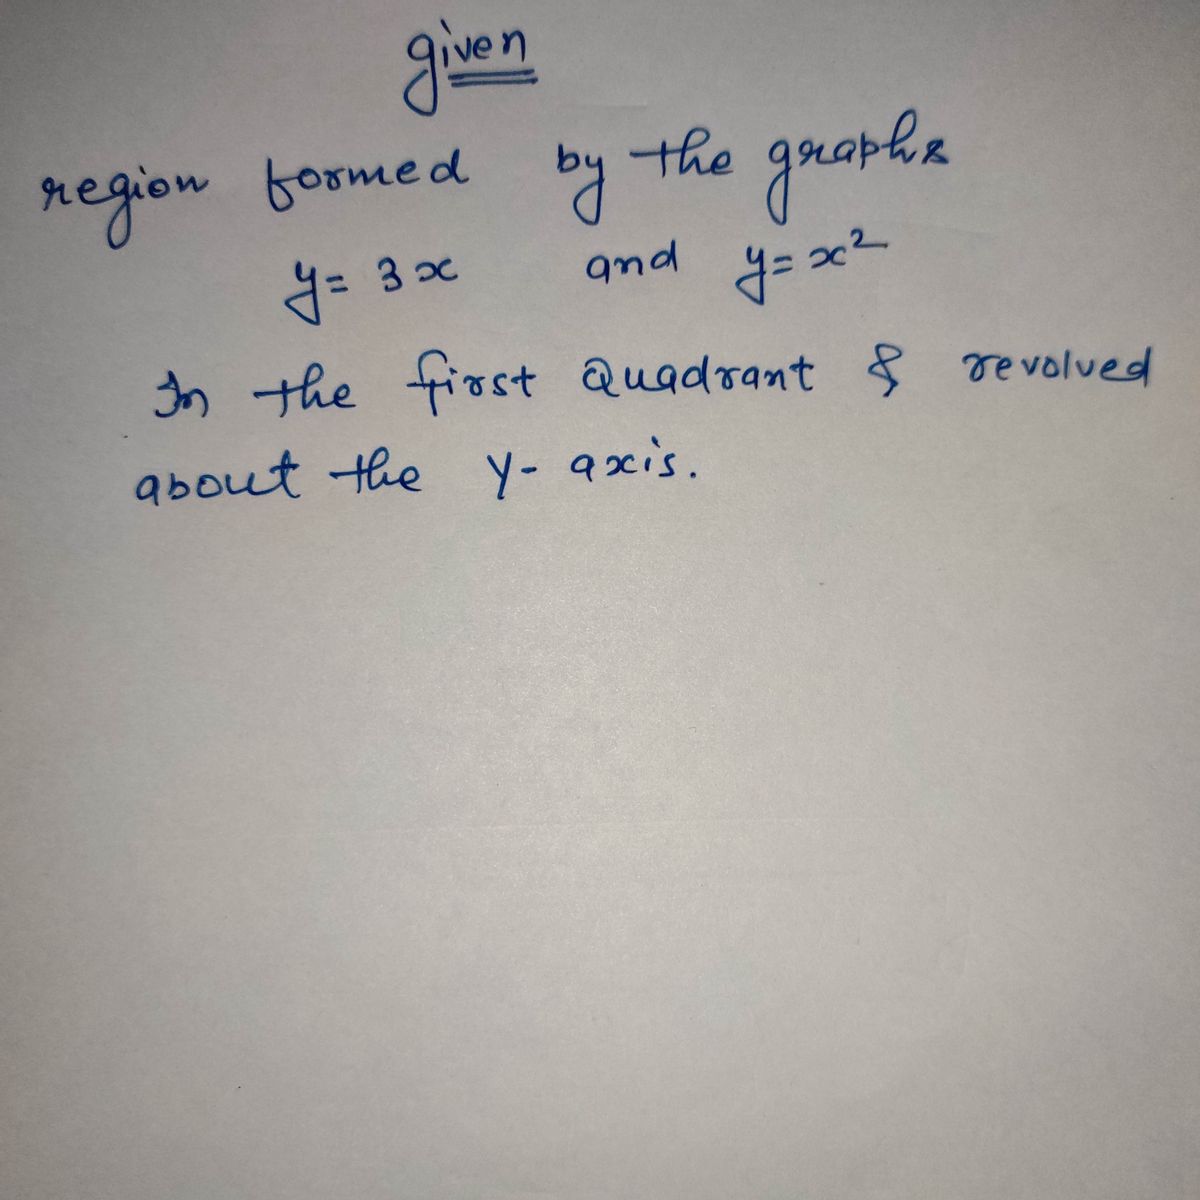 given
region formed by the graphs
y= 3x and y= x²
In the first Quadrant & revolved
about the y- axis.